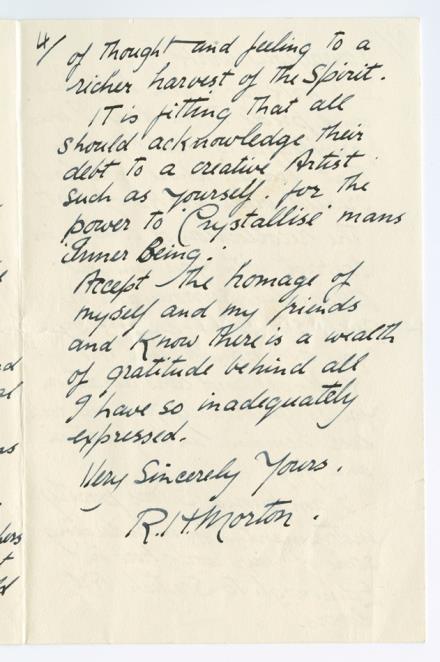 4/
of thought and feeling to a
richer harvest of the Spirit.
It is fitting that all
should acknowledge their
debt to a creative Artist
such as yourself. for the
power to 'Crystallise' mans
'Inner Being.'
Accept the homage of
myself and my friends
and know there is a wealth
of gratitude behind all
I have so inadequately
expressed.
Very Sincerely Yours.
R.H.Morton.